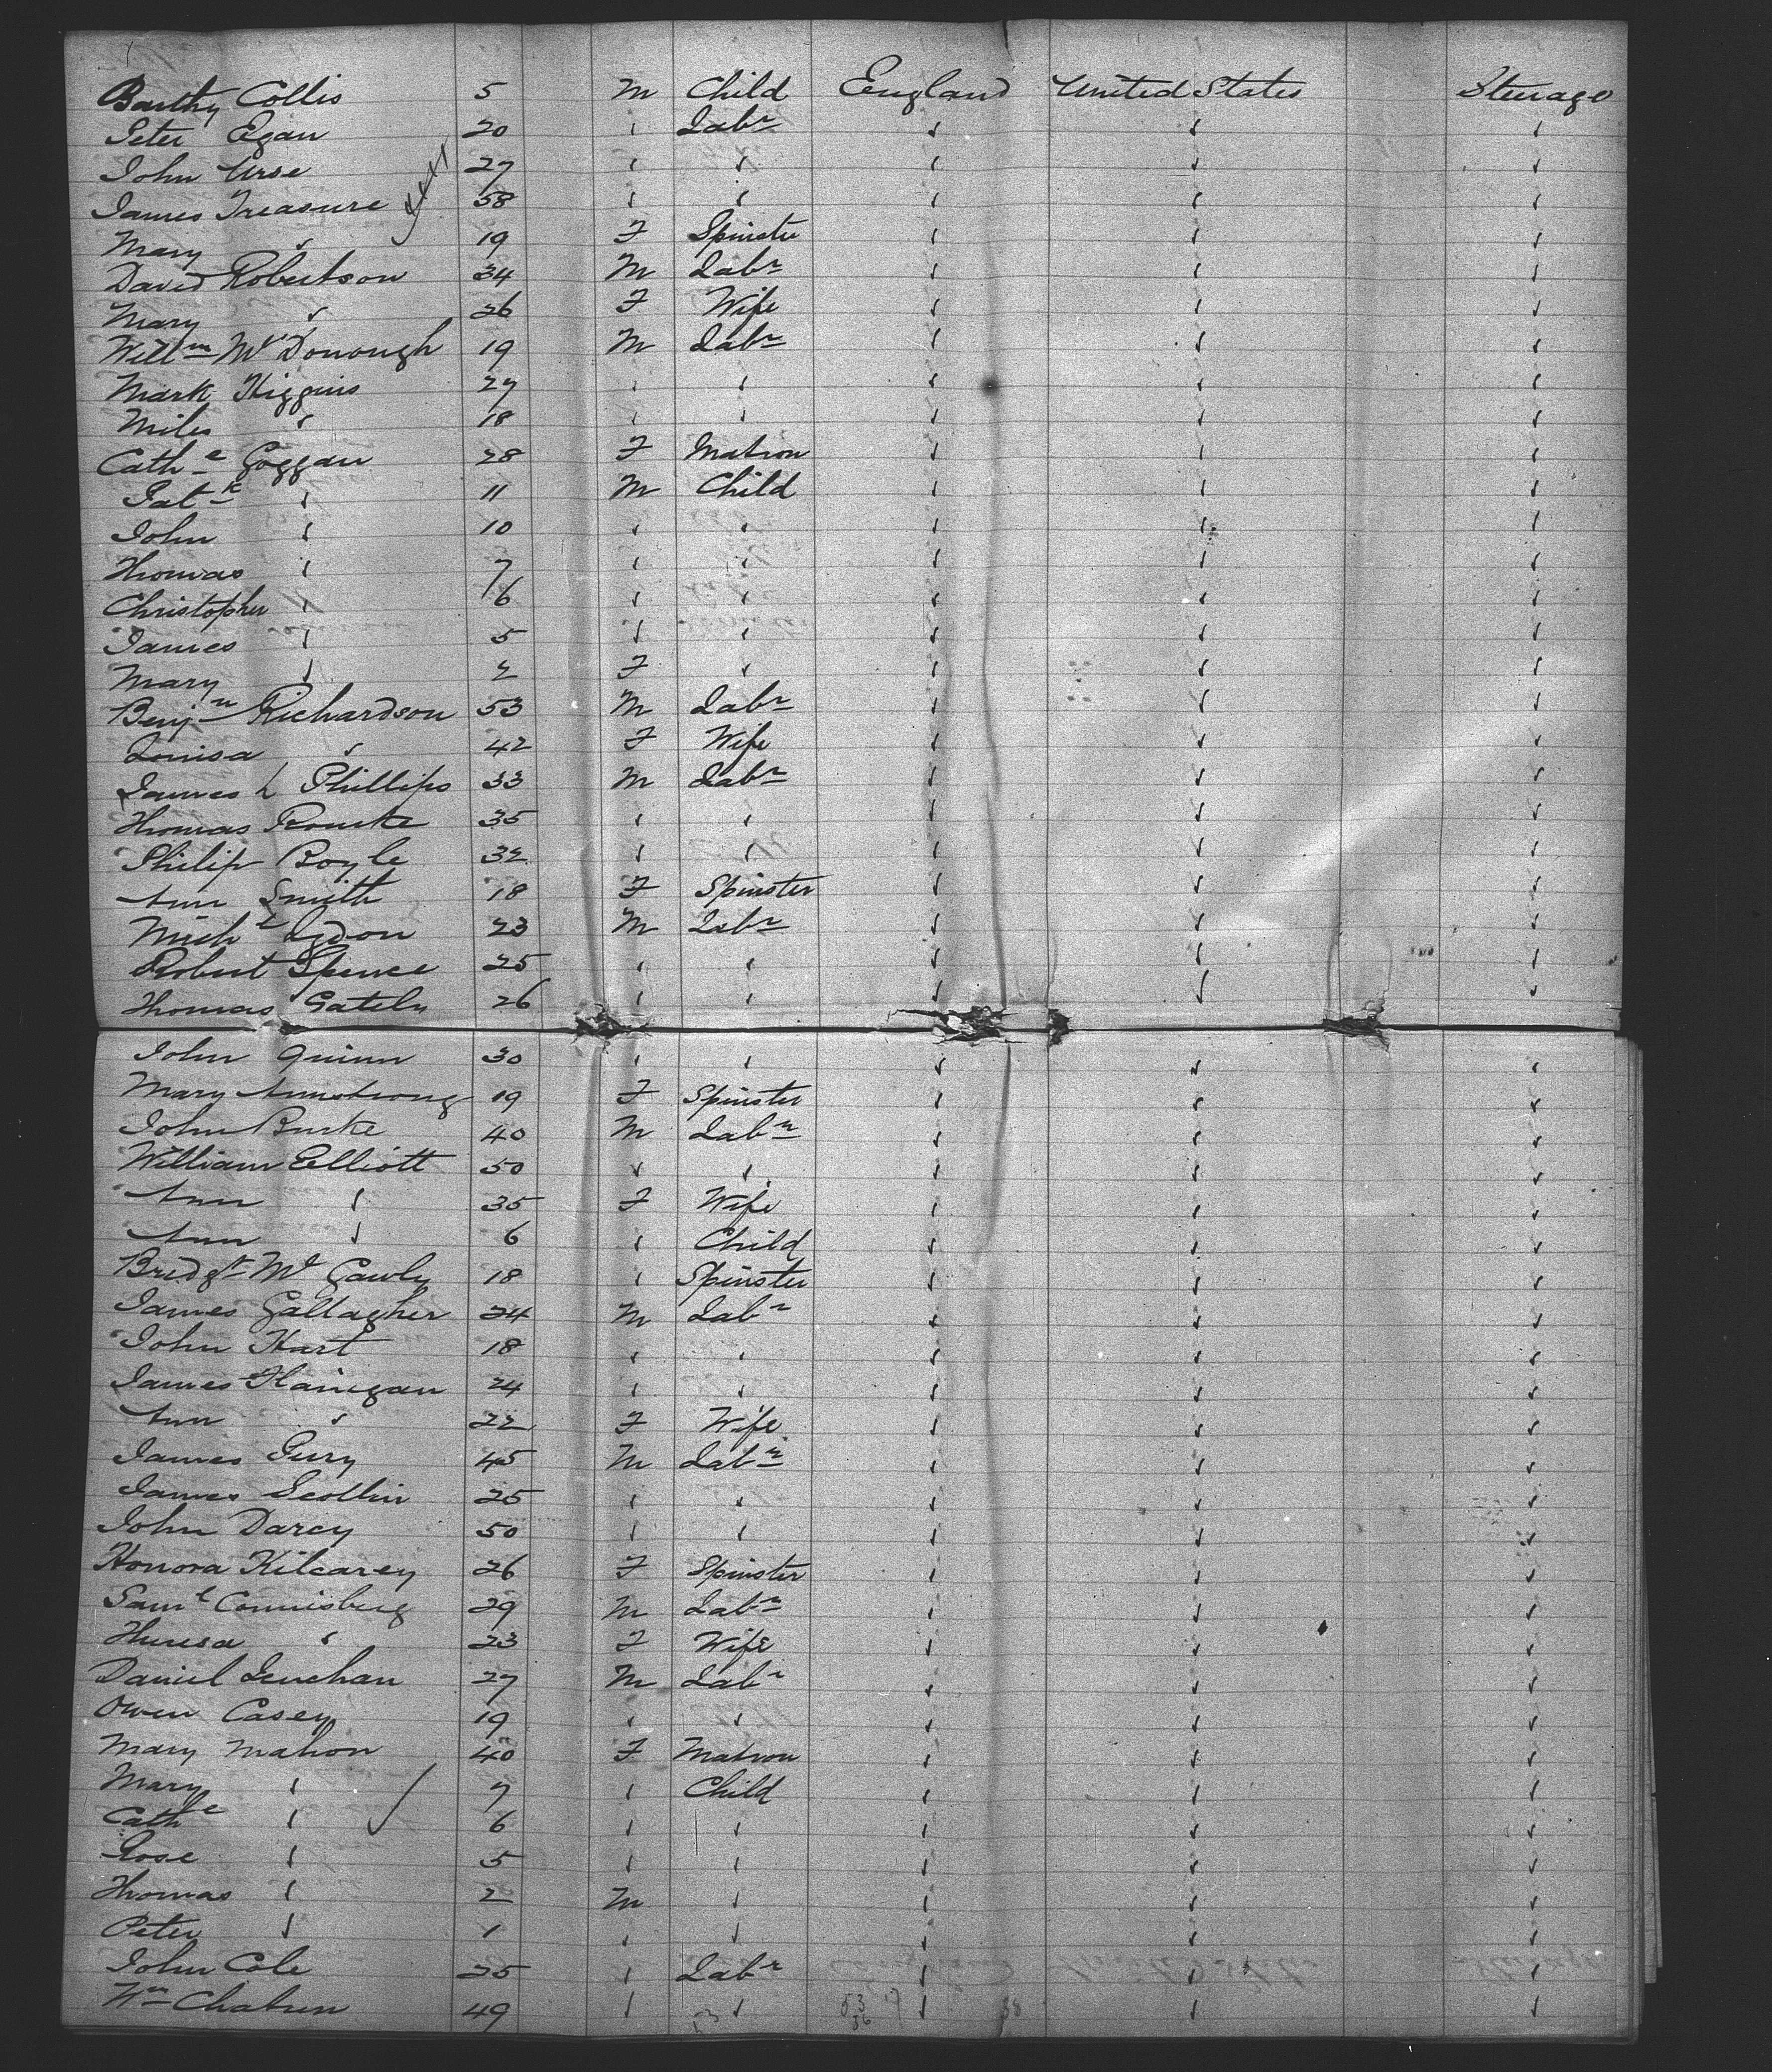 Barthy Collis 5 M Child England United States Steerage
Peter Egan 20 " Labr " " "
John Urse 27 " " " " "
James Treasure 58 " " " " "
Mary " 19 F Spinster " " "
David Robertson 34 M Labr " " "
Mary " 26 F Wife " " "
Willm McDonough 19 M Labr " " "
Mark Higgins 27 " " " " "
Miles " 18 " " " " "
Cathe Goggan 28 F Matron " " "
Patk " 11 M Child " " "
John " 10 " " " " "
Thomas " 7 " " " " "
Christopher " 6 " " " " "
James " 5 " " " " "
Mary " 2 F " " " "
Benjn Richardson 53 M Labr " " "
Louisa " 42 F Wife " " "
James L Phillips 33 M Labr " " "
Thomas Rourke 35 " " " " "
Philip Boyle 32 " " " " "
Ann Smith 18 F Spinster " " "
Michl 23 M Labr " " "
Robert Spence 25 " " " " "
Thomas Gately 26 " " " " "
John Quinn 30 " " " " "
Mary Armstrong 19 F Spinster " " "
John Burke 40 M Labr " " "
William Elliott 50 " " " " "
Ann " 35 F Wife " " "
Ann " 6 " Child " " "
Bridgt McGawly 18 " Spinster " " "
James Gallagher 24 M Labr " " "
John Hart 18 " " " " "
James Flanigan 24 " " " " "
Ann " 22 F Wife " " "
James Pury 45 M Labr " " "
James Scollin 25 " " " " "
John Darcy 50 " " " " "
Honora Kilcarey 26 F Spinster " " "
Saml Connisberg 29 M Labr " " "
Theresa " 23 F Wife " " "
Daniel Lenehan 27 M Labr " " "
Owen Casey 19 " " " " "
Mary Mahon 40 F Matron " " "
Mary " 7 " Child " " "
Cathe " 6 " " " " "
Rose " 5 " " " " "
Thomas " 2 M " " " "
Peter " 1 " " " " "
John Cole 25 " Labr " " "
Wm 49 " " " " "
53 17 38
36